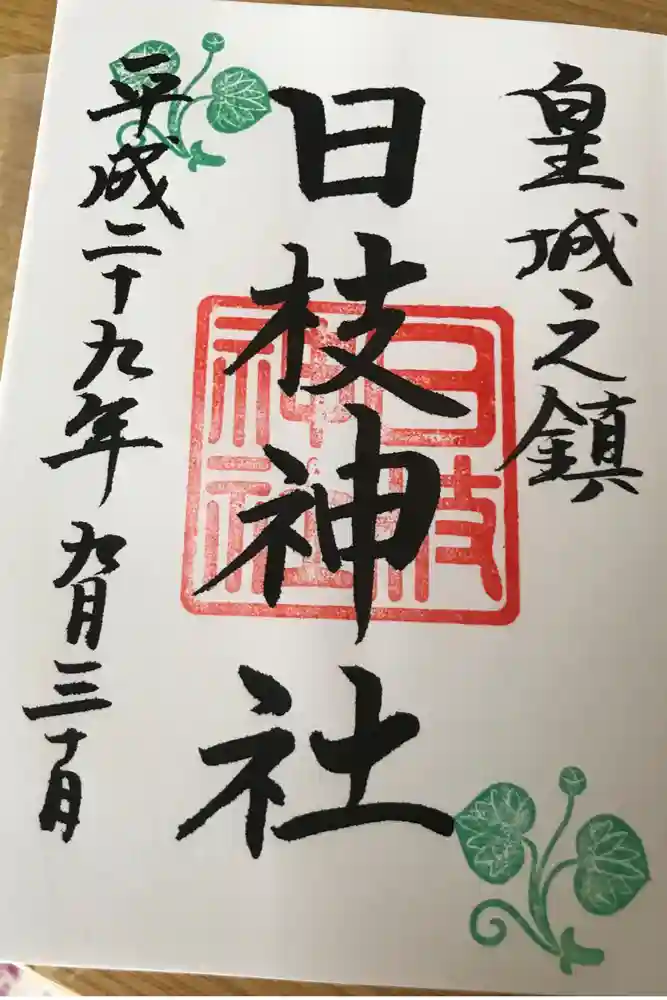 皇城之鎮
日枝神社
日枝
神社
平成二十九年九月三十日